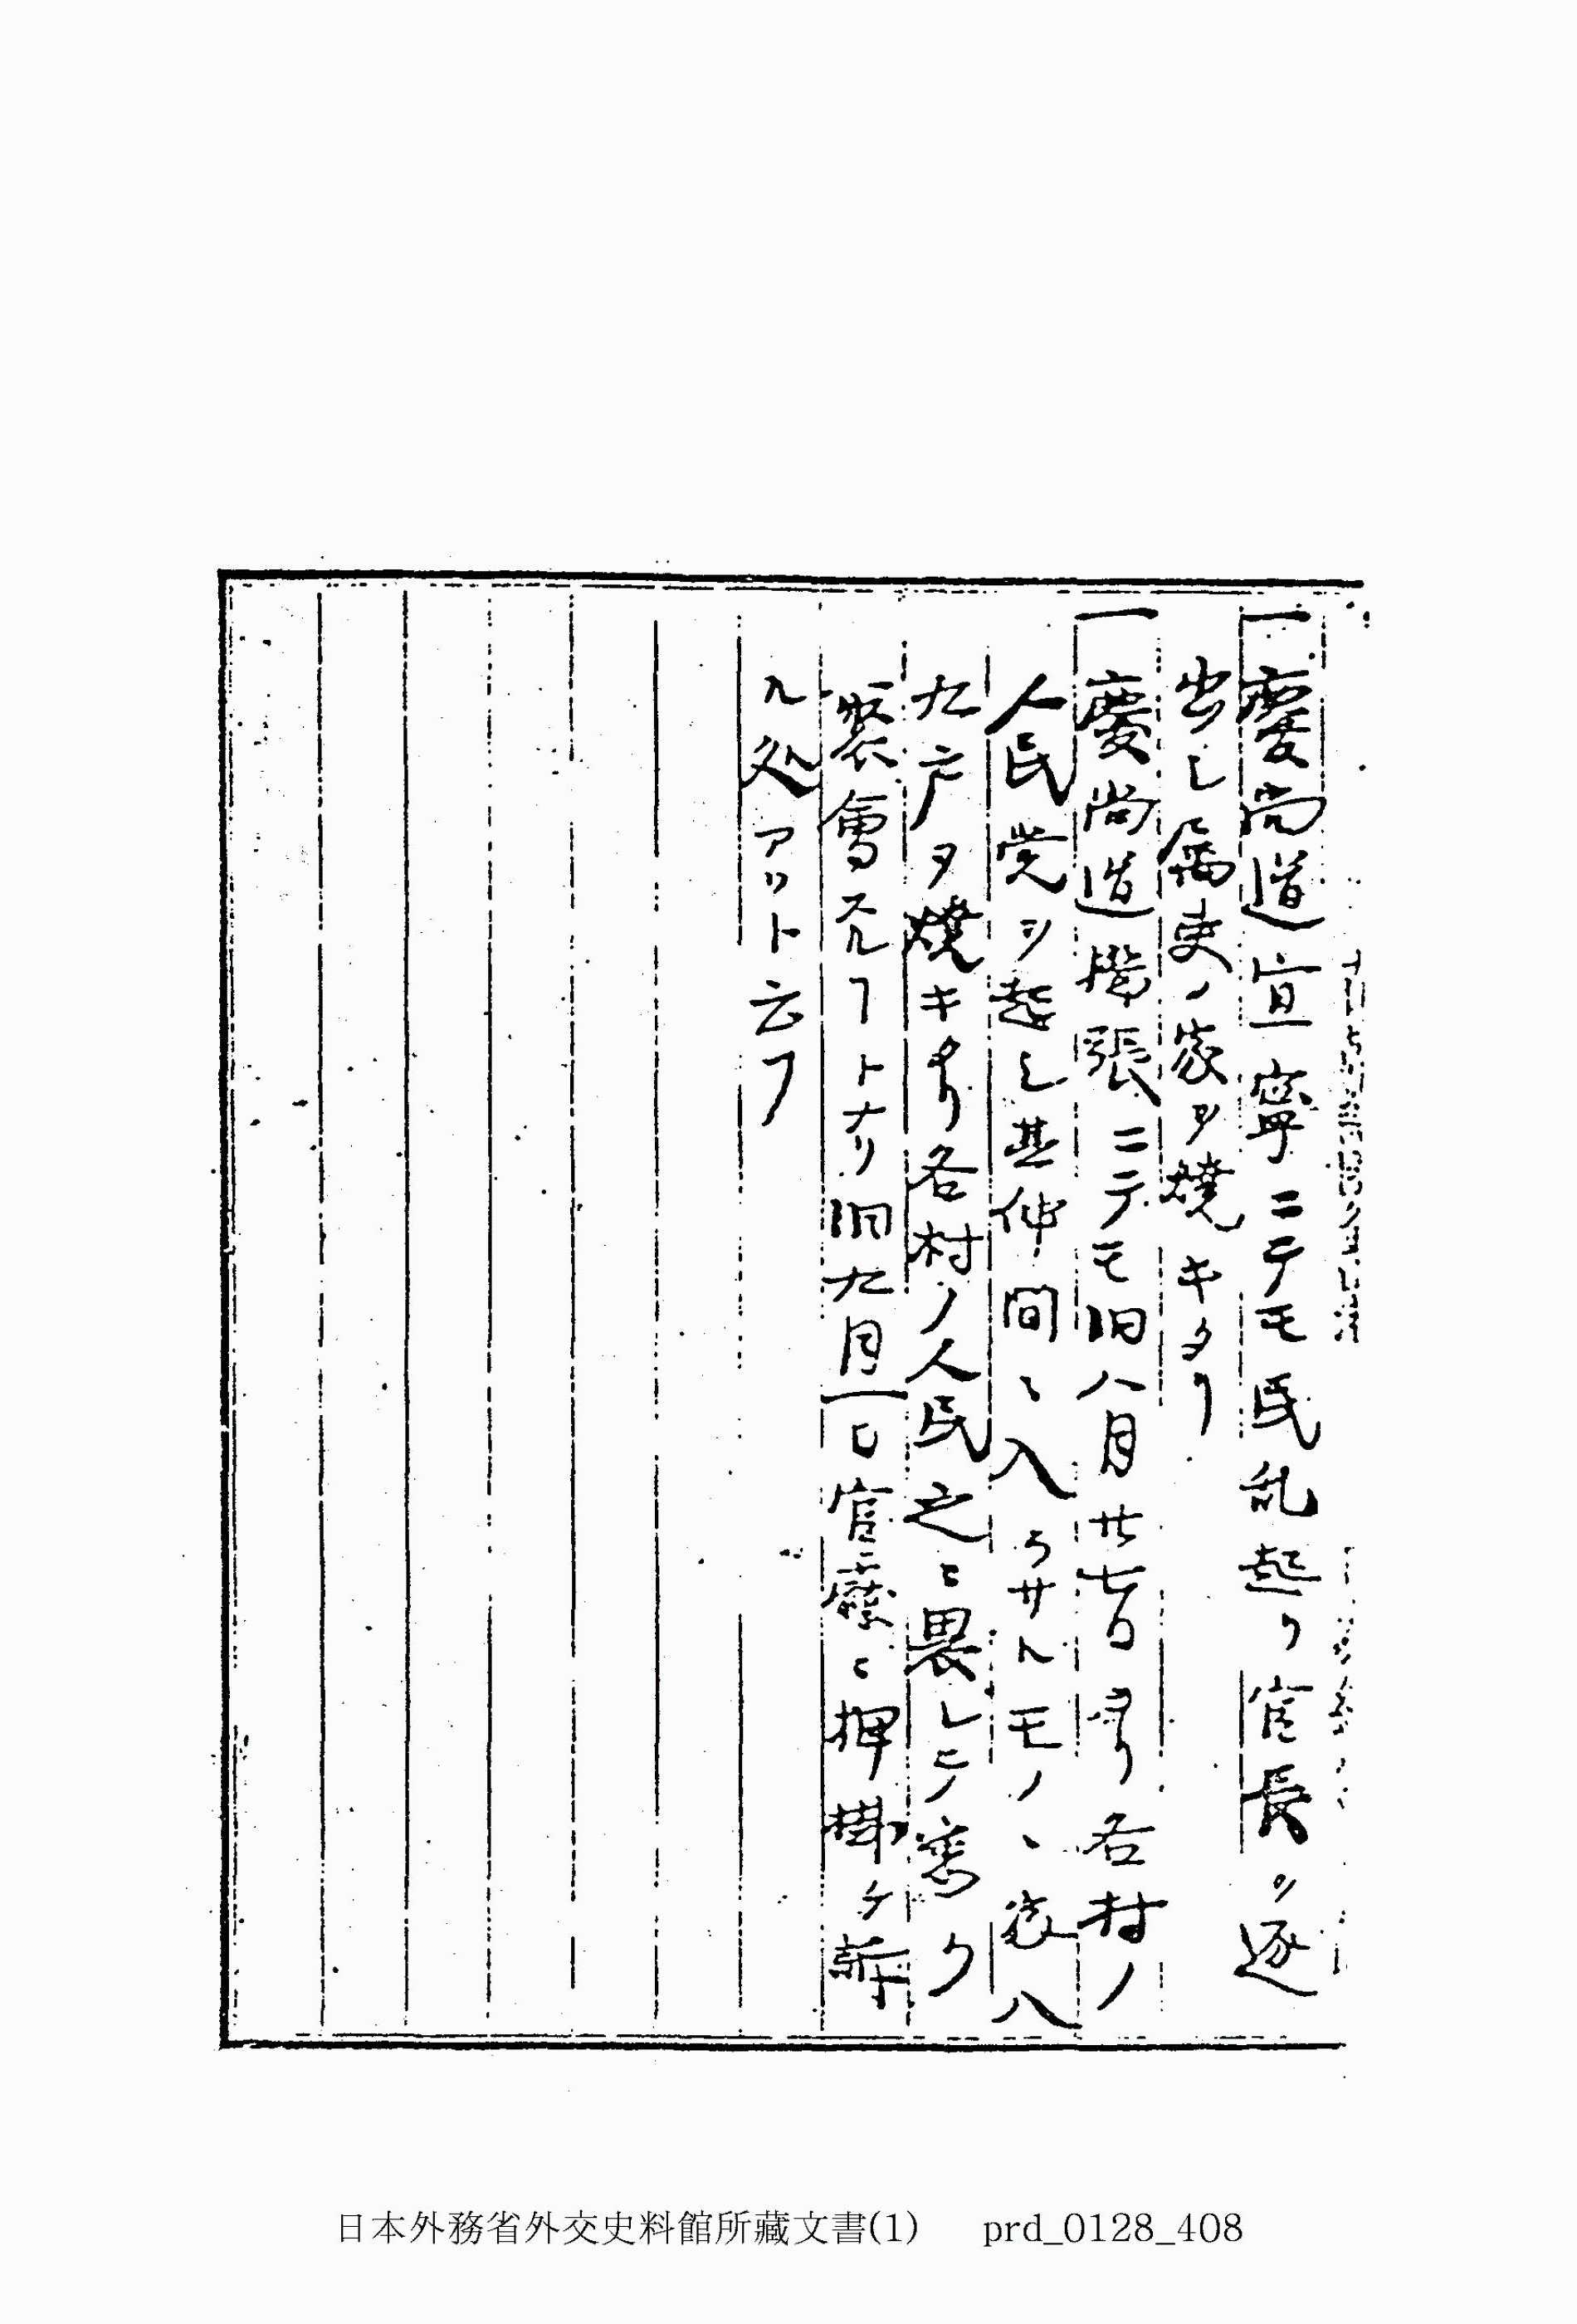 一慶尚道宜寧ニテモ民乱起リ官長ヲ逐
出シ属吏ノ家ヲ焼キタリ
一慶尚道 張ニテモ旧八月廿七日ヨリ各村ノ
人民党ヲ起シ其仲間ニ入ラサルモノハ家八
九戸ヲ焼キタリ各村ノ人民之ニ畏レテ悉ク
聚會スルヿトナリ旧九月一日官廳ニ押掛ケ訴
ル処アリト云フ
日本外務省外交史料館所藏文書(1) prd_0128_408